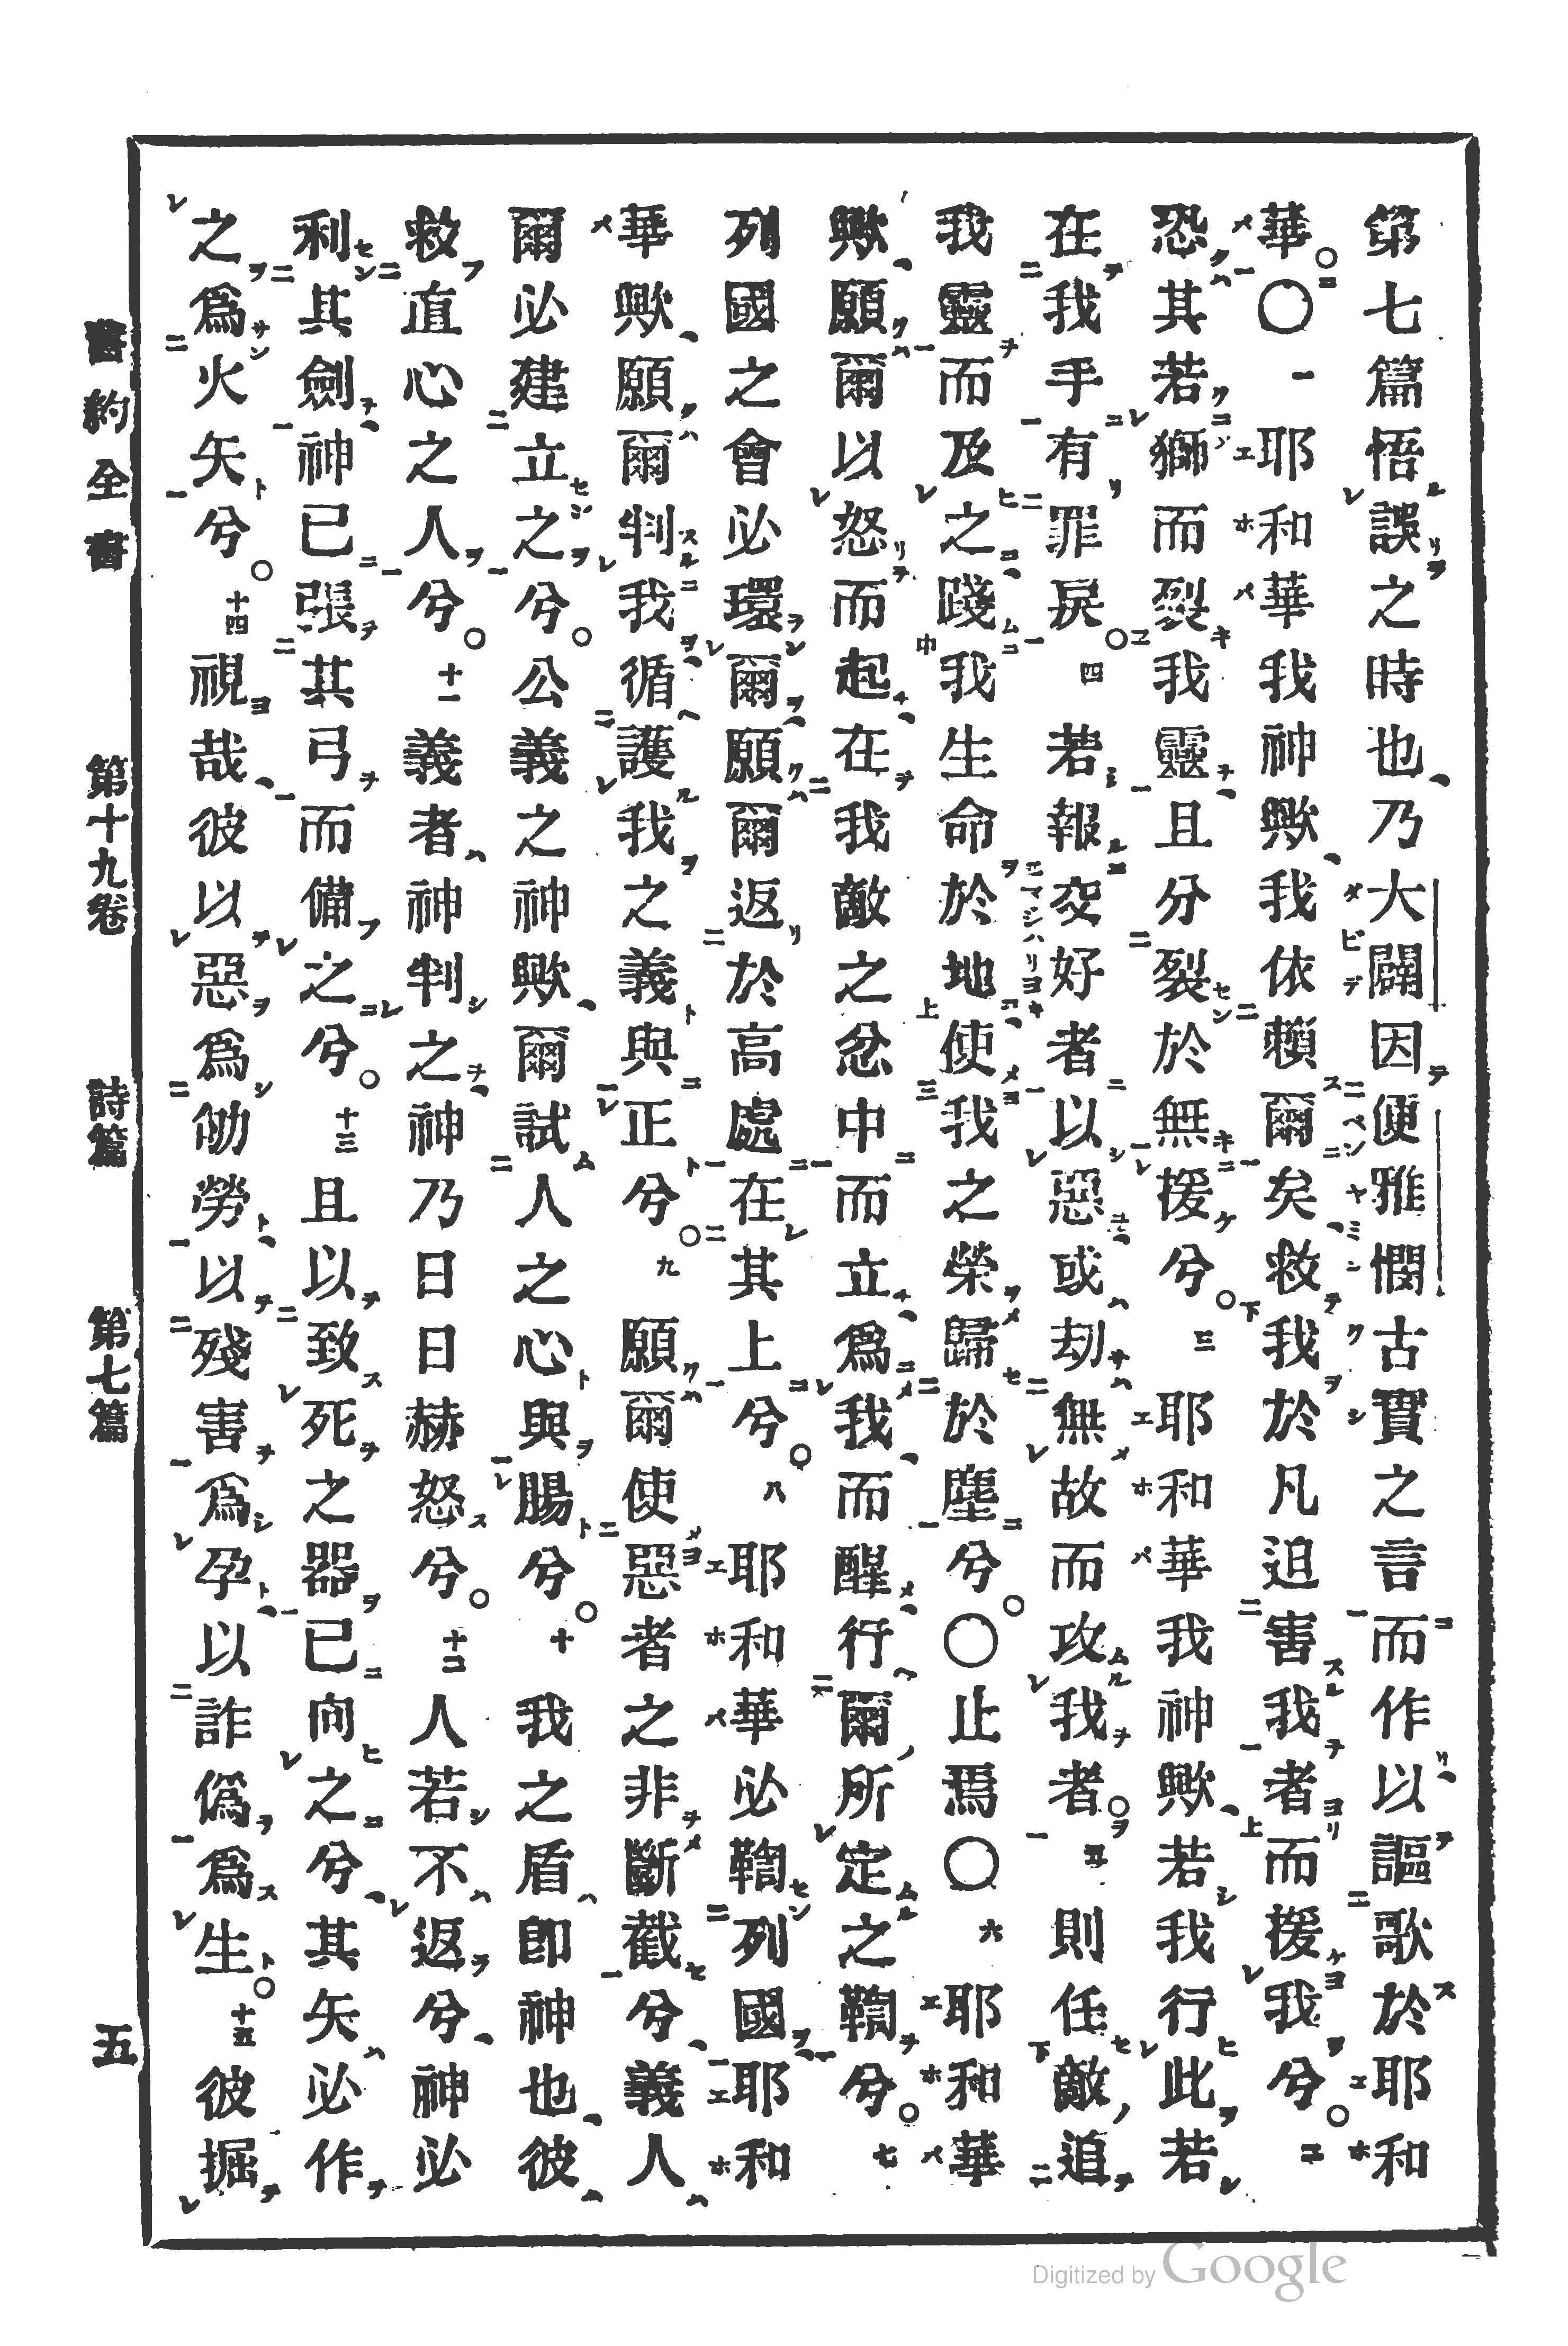 第七篇悟誤之時也乃大闢因便雅憫古實之言而作以謳歌於耶和
華○一耶和華我神歟我依賴爾矣救我於凡迫害我者而援我兮○二
恐其若獅而裂我靈且分裂於無援兮○三耶和華我神歟若我行此若
在我手有罪戾○四若報交好者以惡或劫無故而攻我者○五則任敵追
我靈而及之踐我生命於地使我之榮歸於塵兮○○止焉○六耶和華
歟願爾以怒而起在我敵之忿中而立爲我而醒行爾所定之鞫兮○七
列國之會必環爾願爾返於高處在其上兮○八耶和華必鞫列國耶和
華歟願爾判我循護我之義與正兮○九願爾使惡者之非斷截兮義人
爾必建立之兮○公義之神歟爾試人之心與腸兮○十我之盾卽神也彼
救直心之人兮○十一義者神判之神乃日日赫怒兮○十二人若不返兮神必
利其劍神已張其弓而備之兮○十三且以致死之器已向之兮其矢必作
之爲火矢兮○十四視哉彼以惡爲劬勞以殘害爲孕以詐僞爲生○十五彼掘
舊約全書 第十九卷 詩篇 第七篇 五
Digitized by Google